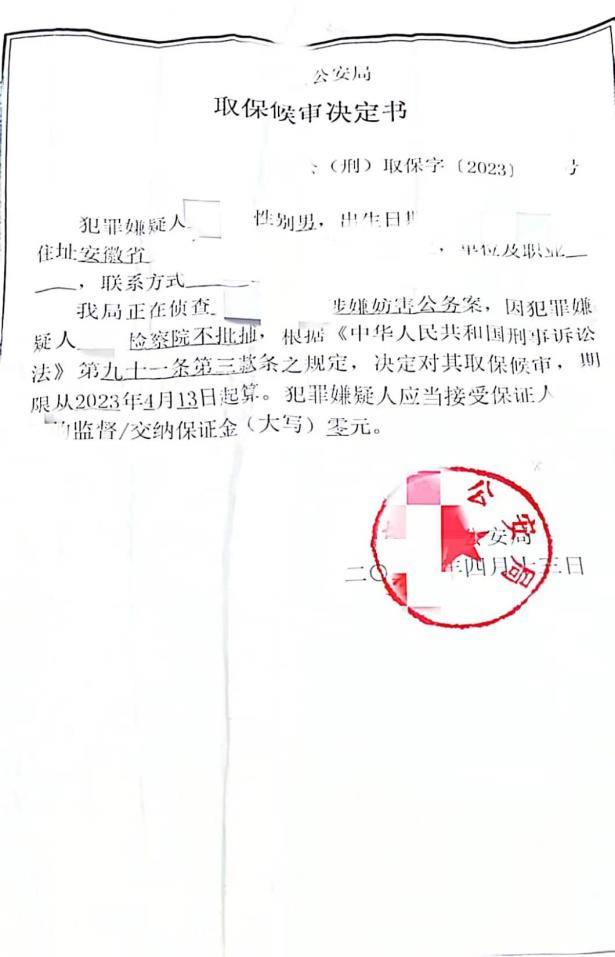 公安局
取保候审决定书
(刑)取保字〔2023〕 号
犯罪嫌疑人 性别男,出生日期
住址安徽省 ,单位及职业
,联系方式
我局正在侦查 涉嫌妨害公务案,因犯罪嫌
疑人 检察院不批捕,根据《中华人民共和国刑事诉讼
法》第九十一条第三款条之规定,决定对其取保候审,期
限从2023年4月13日起算。犯罪嫌疑人应当接受保证人
的监督/交纳保证金(大写)零元。
公安局
公安局
二〇 年四月十三日